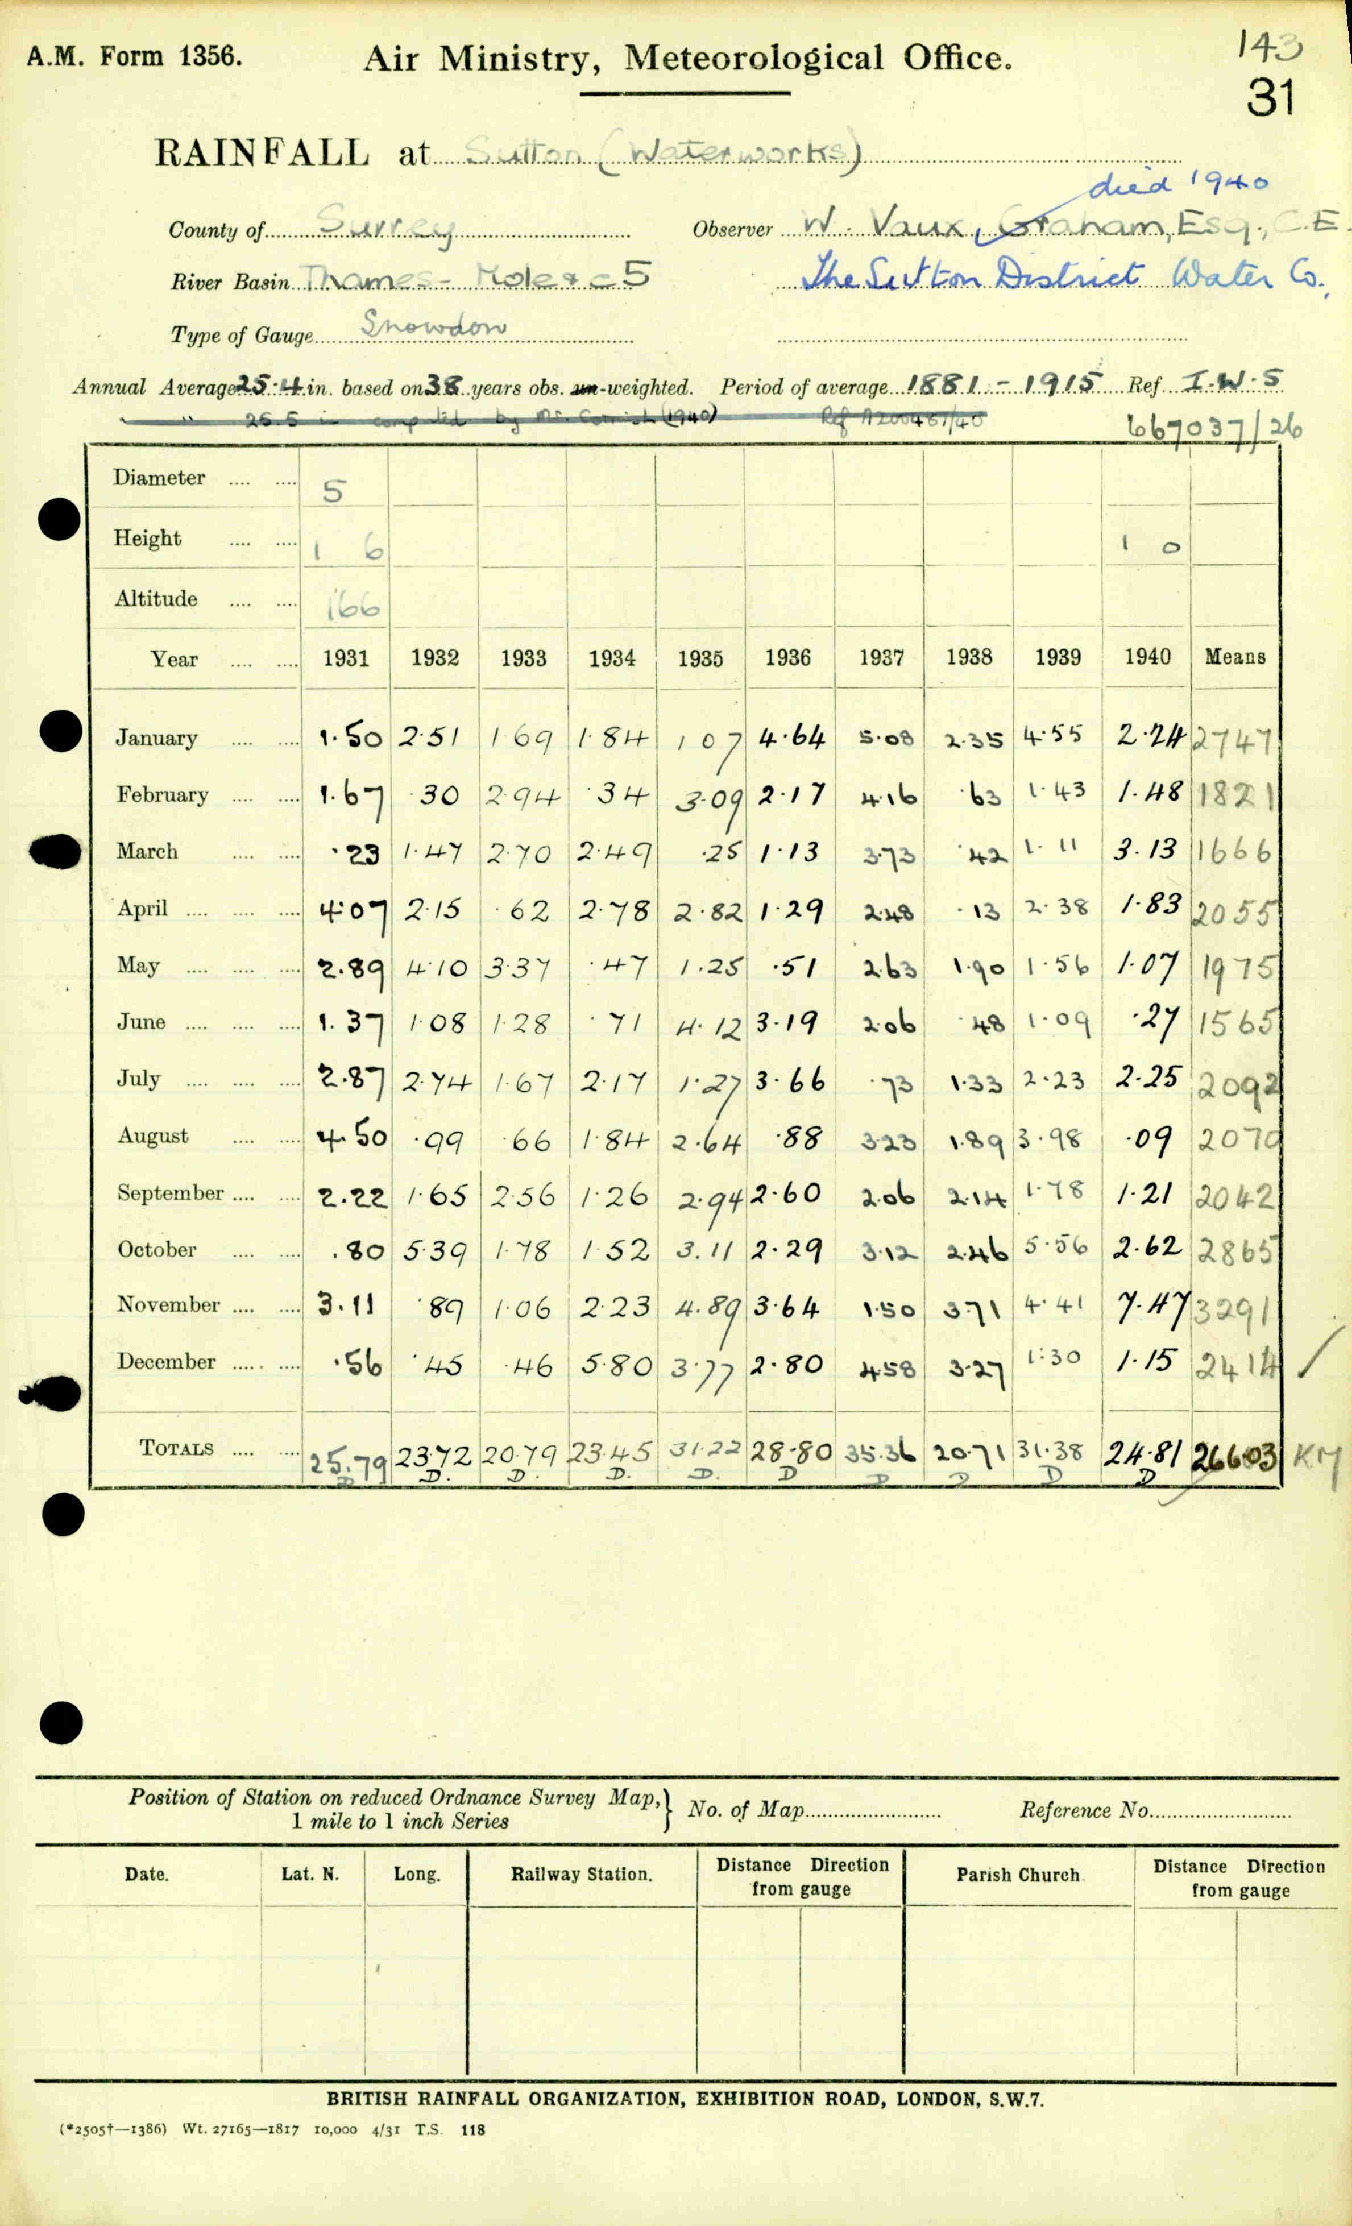 A.M. Form 1356. Air Ministry, Meteorological Office. 143
31
RAINFALL at Sutton (Waterworks)
died 1940
County of Surrey Observer W. Vaux, Graham, Esq., C.E.
River Basin Thames - Mole &c 5 The Sutton District Water Co.,
Type of Gauge Snowdon
Annual Average 25.4 in. based on 38 years obs. un-weighted. Period of average 1881 - 1915 Ref. I.W.S
" 25.5 in computed by Mr. Cornish (1940) Ref A200487/40 667037/26
Diameter .... .... 5
Height .... .... 1 6 1 0
Altitude .... .... 166
Year .... .... 1931 1932 1933 1934 1935 1936 1937 1938 1939 1940 Means
January .... .... 1.50 2.51 1.69 1.84 1 07 4.64 5.08 2.35 4.55 2.24 2747
February .... .... 1.67 .30 2.94 .34 3.09 2.17 4.16 .63 1.43 1.48 1821
March .... .... .23 1.47 2.70 2.49 .25 1.13 3.73 .42 1.11 3.13 1666
April .... .... .... 4.07 2.15 .62 2.78 2.82 1.29 2.48 .13 2.38 1.83 2055
May .... .... .... 2.89 4.10 3.37 .47 1.25 .51 2.63 1.90 1.56 1.07 1975
June .... .... .... 1.37 1.08 1.28 .71 4.12 3.19 2.06 .48 1.09 .27 1565
July .... .... .... 2.87 2.74 1.67 2.17 1.27 3.66 .73 1.33 2.23 2.25 2092
August .... .... 4.50 .99 .66 1.84 2.64 .88 3.23 1.89 3.98 .09 2070
September .... .... 2.22 1.65 2.56 1.26 2.94 2.60 2.06 2.14 1.78 1.21 2042
October .... .... .80 5.39 1.78 1.52 3.11 2.29 3.12 2.46 5.56 2.62 2865
November .... .... 3.11 .89 1.06 2.23 4.89 3.64 1.50 3.71 4.41 7.47 3291
December .... .... .56 .45 .46 5.80 3.77 2.80 4.58 3.27 1.30 1.15 2414
TOTALS .... .... 25.79 23.72 20.79 23.45 31.22 28.80 35.36 20.71 31.38 24.81 26603 KM
D D. D. D. D. D D D D D
Position of Station on reduced Ordnance Survey Map, } No. of Map Reference No.
1 mile to 1 inch Series
Date. Lat. N. Long. Railway Station. Distance Direction from gauge Parish Church Distance Direction from gauge
BRITISH RAINFALL ORGANIZATION, EXHIBITION ROAD, LONDON, S.W.7.
(*2505†—1386) Wt. 27165—1817 10,000 4/31 T.S. 118